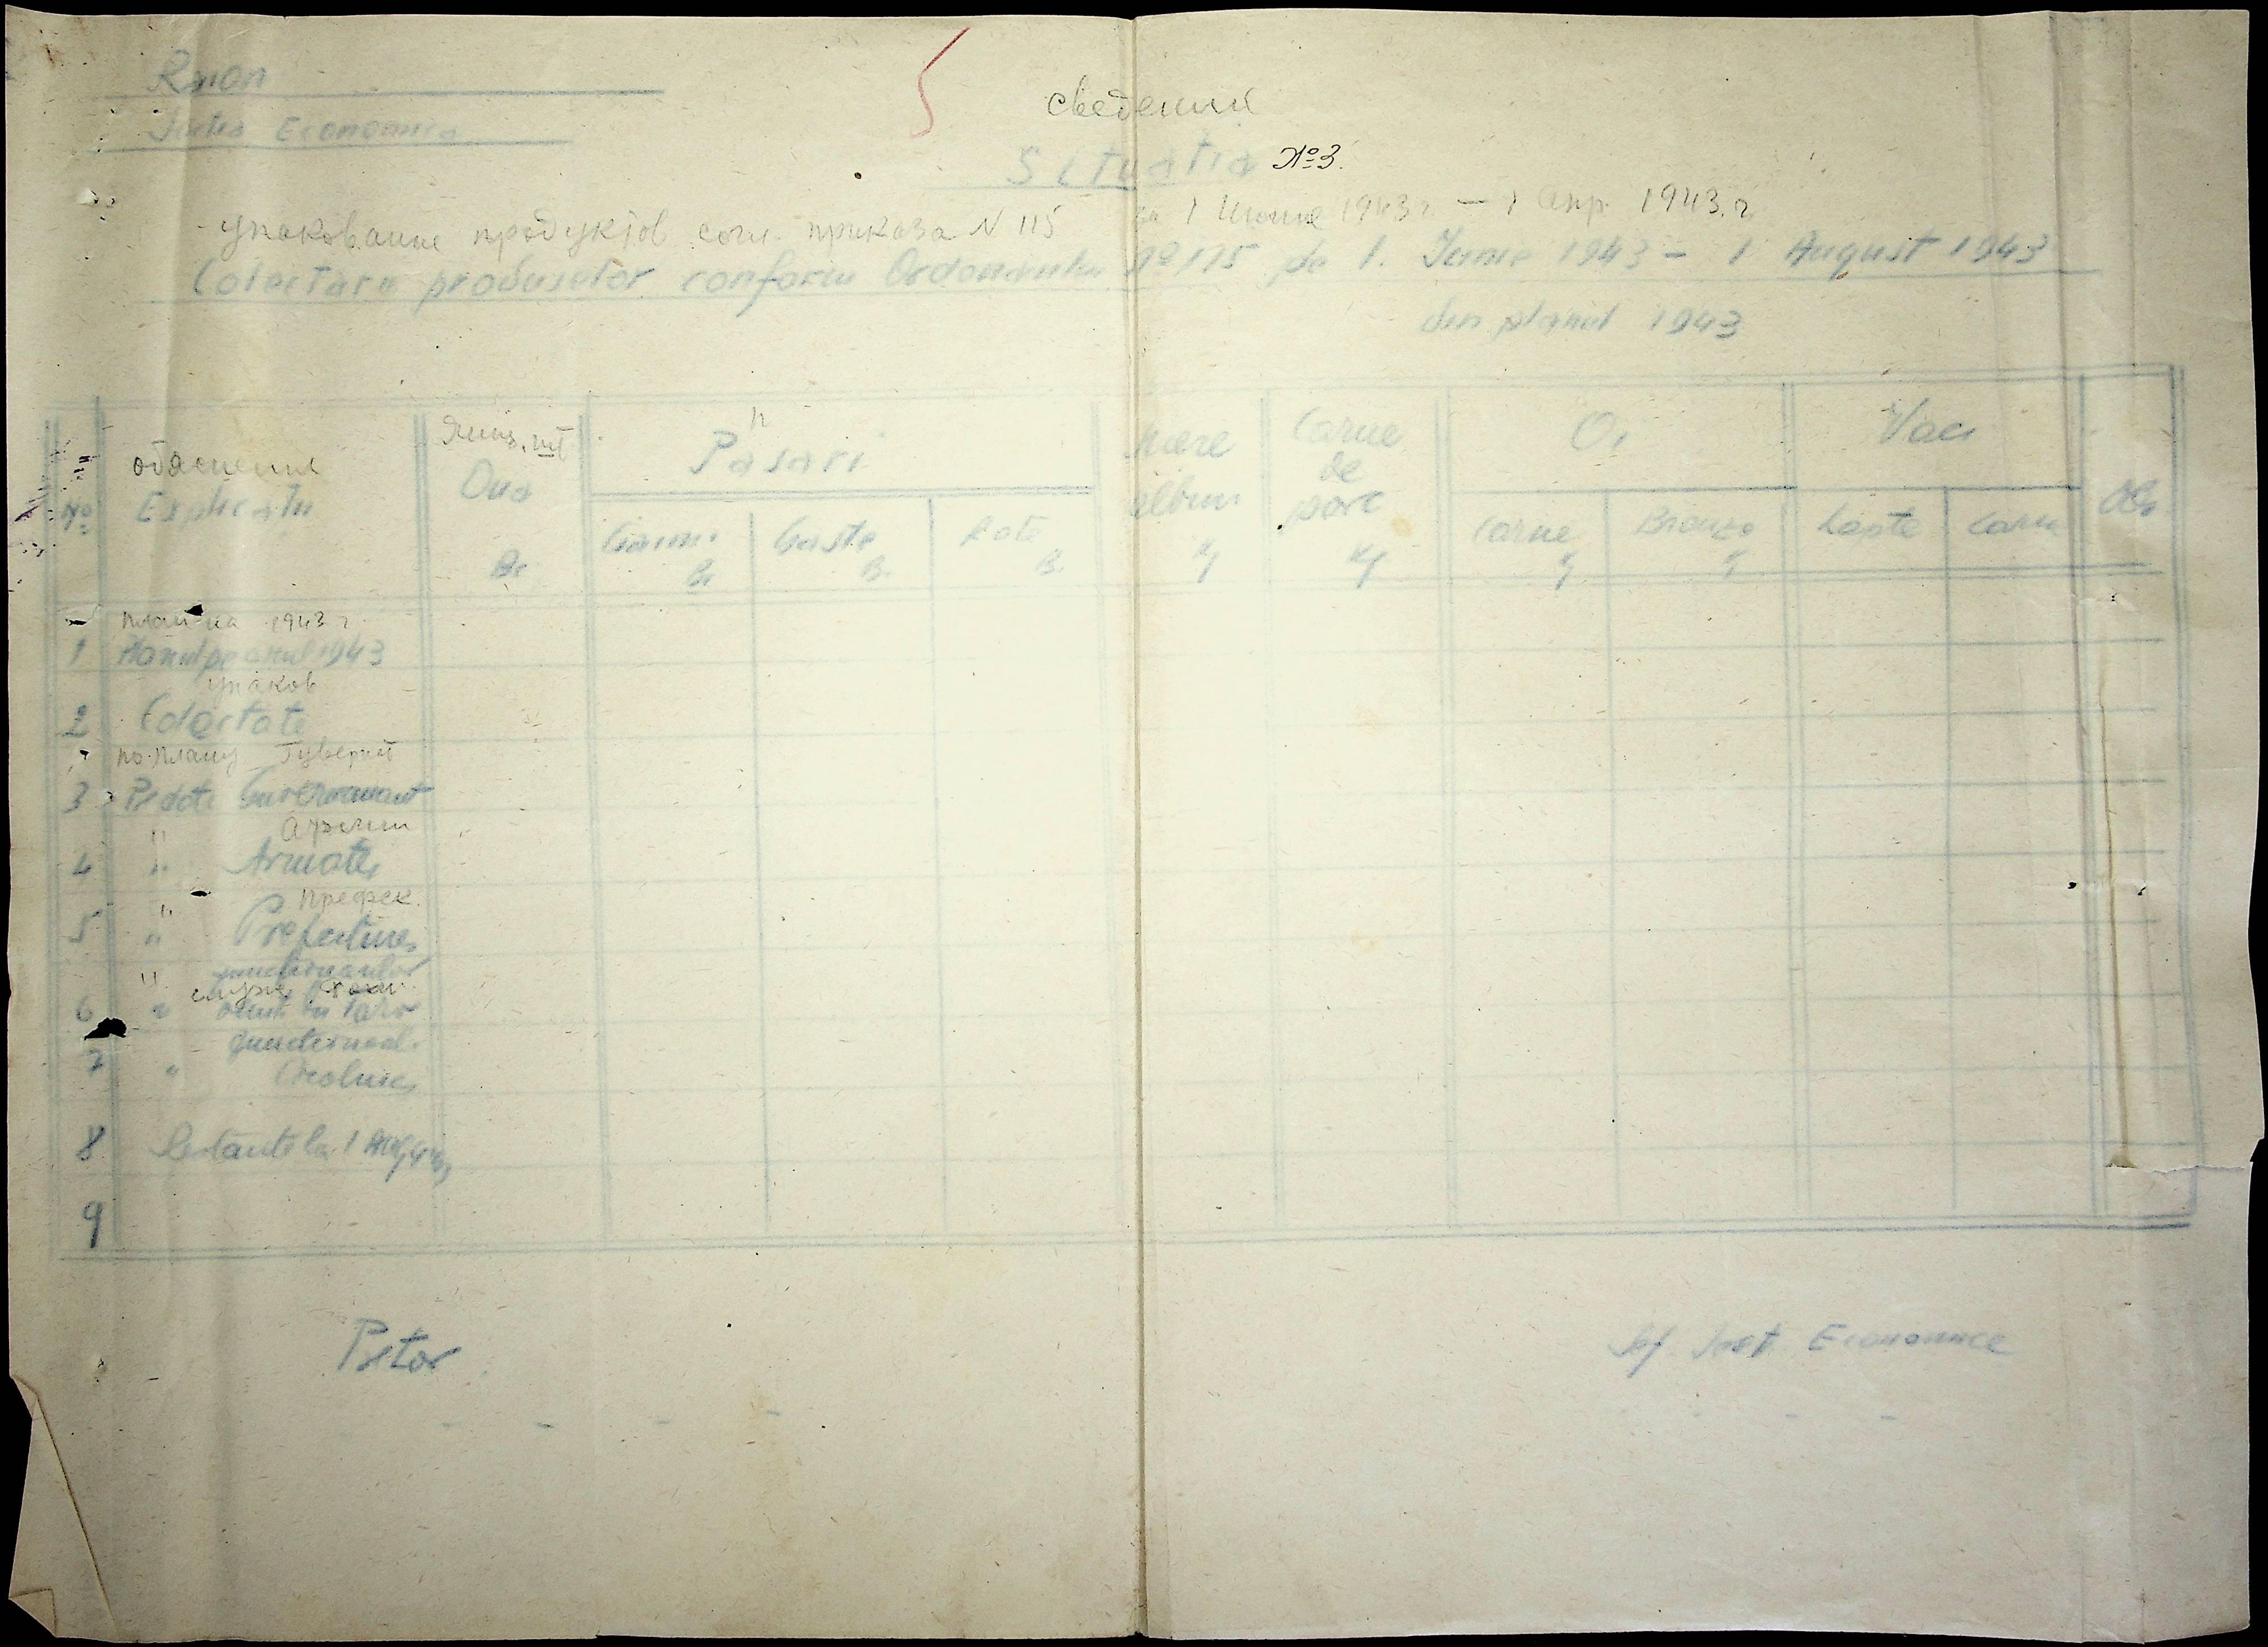 Raion
Economica
сведения
Situatia №3.
упакование продуктов согл. приказа N 115 за 1 Июня 1943 г. — 1 апр. 1943. г.
Colectare produselor conform Ordonantei No 115 de 1. Junie 1943 - 1 August 1943
din planul 1943
No
обяснения
Explicatii
Яиц. шт
Oua
Bc
"
Pasari
Gaini Bc
Gaste B.
Rate B.
Miere album Kg
Carne de porc Kg
Oi
Carne Kg
Branza Kg
Vaci
Lapte
Carne
Obs
план на 1943 г.
1 Planul pe anul 1943
упаков
2 Colectate
по плану Губернат
3 Predate Guvernamant
" Армии
4 " Armatei
" Префек.
5 " Prefecturei
"
6 "
7 "
8 Restante la 1 Aug 943
9
Pretor
Sef Economice